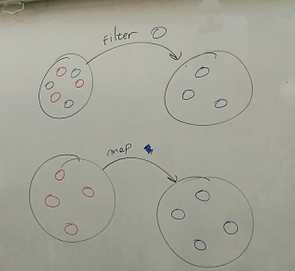 filter
map